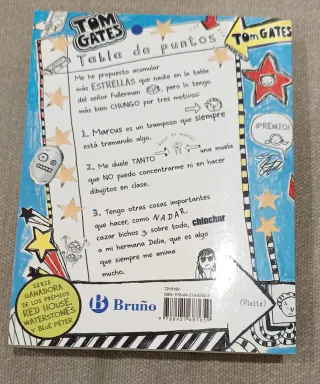 TOM GATES
TOM GATES
Tabla de puntos
Me he propuesto acumular
más ESTRELLAS que nadie en la tabla
del señor Fullerman, pero lo tengo
más bien CHUNGO por tres motivos:
1. Marcus es un tramposo que siempre
está tramando algo.
2. Me duele TANTO una muela
que NO puedo concentrarme ni en hacer
dibujitos en clase.
3. Tengo otras cosas importantes
que hacer, como NADAR,
cazar bichos y sobre todo, chinchar
a mi hermana Delia, que es algo
que siempre me anima
mucho.
¡PREMIO!
SERIE
GANADORA
DE LOS PREMIOS
RED HOUSE,
WATERSTONES
Y BLUE PETER
Bruño
(Pista)